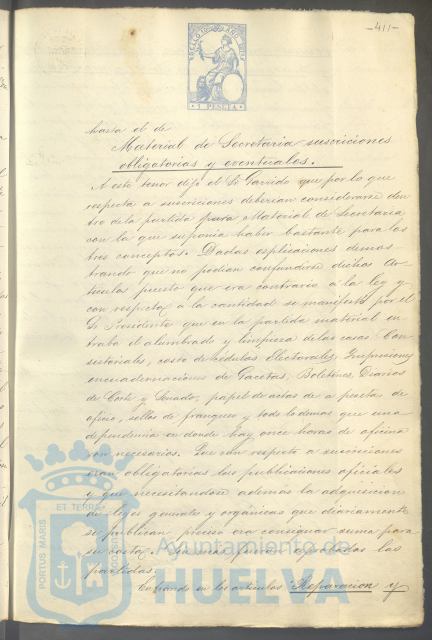 -411-
SELLO 10º AÑO
1 PESETA
hasta el de
Material de Secretaria suscriciones
obligatorias y eventuales.
A este tenor dijo el Sr. Garrido que por lo que
respecta a suscriciones deberian considerarse den
tro de la partida para Material de Secretaria
con la que suponia haber bastante para los
tres conceptos. Dadas esplicaciones demos
trando que no podian confundirse dichos Ar
ticulos puesto que era contrario à la ley y
con respecto à la cantidad se manifesto por el
Sr Presidente que en la partida material en
traba el alumbrado y limpieza de las casas Con
sistoriales, costo de cédulas Electorales, Impresiones
encuadernaciones de Gacetas, Boletines, Diarios
de Corte y Senado, papel de actas de a pesetas de
oficio, sellos de franqueo y todo lo demas que una
dependencia en donde hay once horas de oficina
son necesarios. Que con respecto a suscriciones
eran obligatorias las publicaciones oficiales
y que necesitandose ademas la adquisicion
de leyes generales y orgánicas que diariamente
se publican preciso era consignar suma para
su costo.
fueron aprobadas las
partidas.
Entrando en los articulos Reparacion y
PORTUS MARIS ET TERRE
Ayuntamiento de
HUELVA